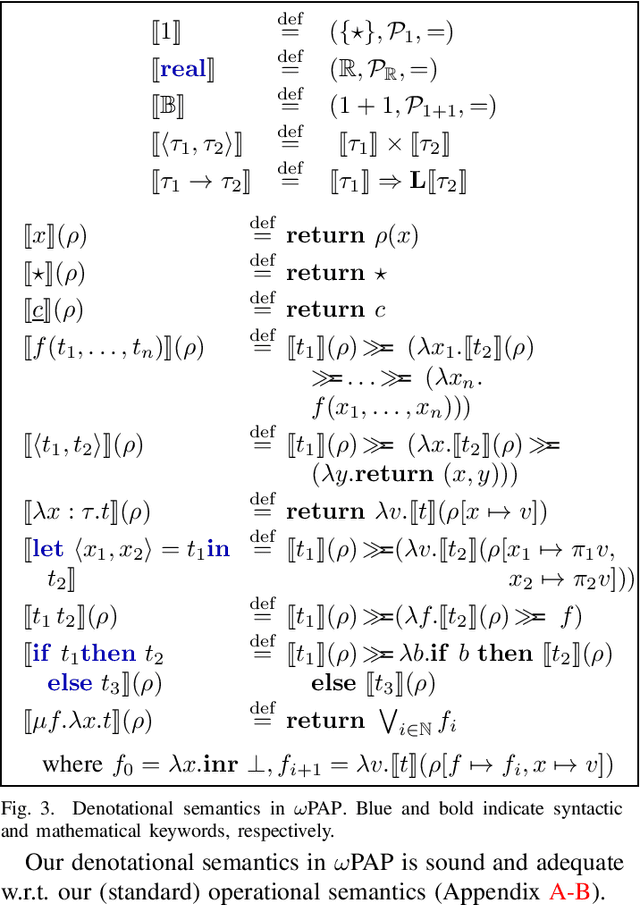 ⟦1⟧ def= ({⋆}, 𝒫₁, =)
⟦real⟧ def= (ℝ, 𝒫_ℝ, =)
⟦𝔹⟧ def= (1 + 1, 𝒫₁₊₁, =)
⟦⟨τ₁, τ₂⟩⟧ def= ⟦τ₁⟧ × ⟦τ₂⟧
⟦τ₁ → τ₂⟧ def= ⟦τ₁⟧ ⇒ L⟦τ₂⟧
⟦x⟧(ρ) def= return ρ(x)
⟦⋆⟧(ρ) def= return ⋆
⟦c̲⟧(ρ) def= return c
⟦f(t₁, . . . , tₙ)⟧(ρ) def= ⟦t₁⟧(ρ) ≫= (λx₁.⟦t₂⟧(ρ)
≫= . . . ≫= (λxₙ.
f(x₁, . . . , xₙ)))
⟦⟨t₁, t₂⟩⟧(ρ) def= ⟦t₁⟧(ρ) ≫= (λx.⟦t₂⟧(ρ) ≫=
(λy.return (x, y)))
⟦λx : τ.t⟧(ρ) def= return λv.⟦t⟧(ρ[x ↦ v])
⟦let ⟨x₁, x₂⟩ = t₁in def= ⟦t₁⟧(ρ) ≫=(λv.⟦t₂⟧(ρ[x₁ ↦ π₁v,
t₂⟧ x₂ ↦ π₂v]))
⟦t₁ t₂⟧(ρ) def= ⟦t₁⟧(ρ) ≫=(λf.⟦t₂⟧(ρ) ≫= f)
⟦if t₁then t₂ def= ⟦t₁⟧(ρ) ≫= λb.if b then ⟦t₂⟧(ρ)
else t₃⟧(ρ) else ⟦t₃⟧(ρ)
⟦μf.λx.t⟧(ρ) def= return ⋁_{i∈ℕ} fᵢ
where f₀ = λx.inr ⊥, fᵢ₊₁ = λv.⟦t⟧(ρ[f ↦ fᵢ, x ↦ v])
Fig. 3. Denotational semantics in ωPAP. Blue and bold indicate syntactic
and mathematical keywords, respectively.
Our denotational semantics in ωPAP is sound and adequate
w.r.t. our (standard) operational semantics (Appendix A-B).